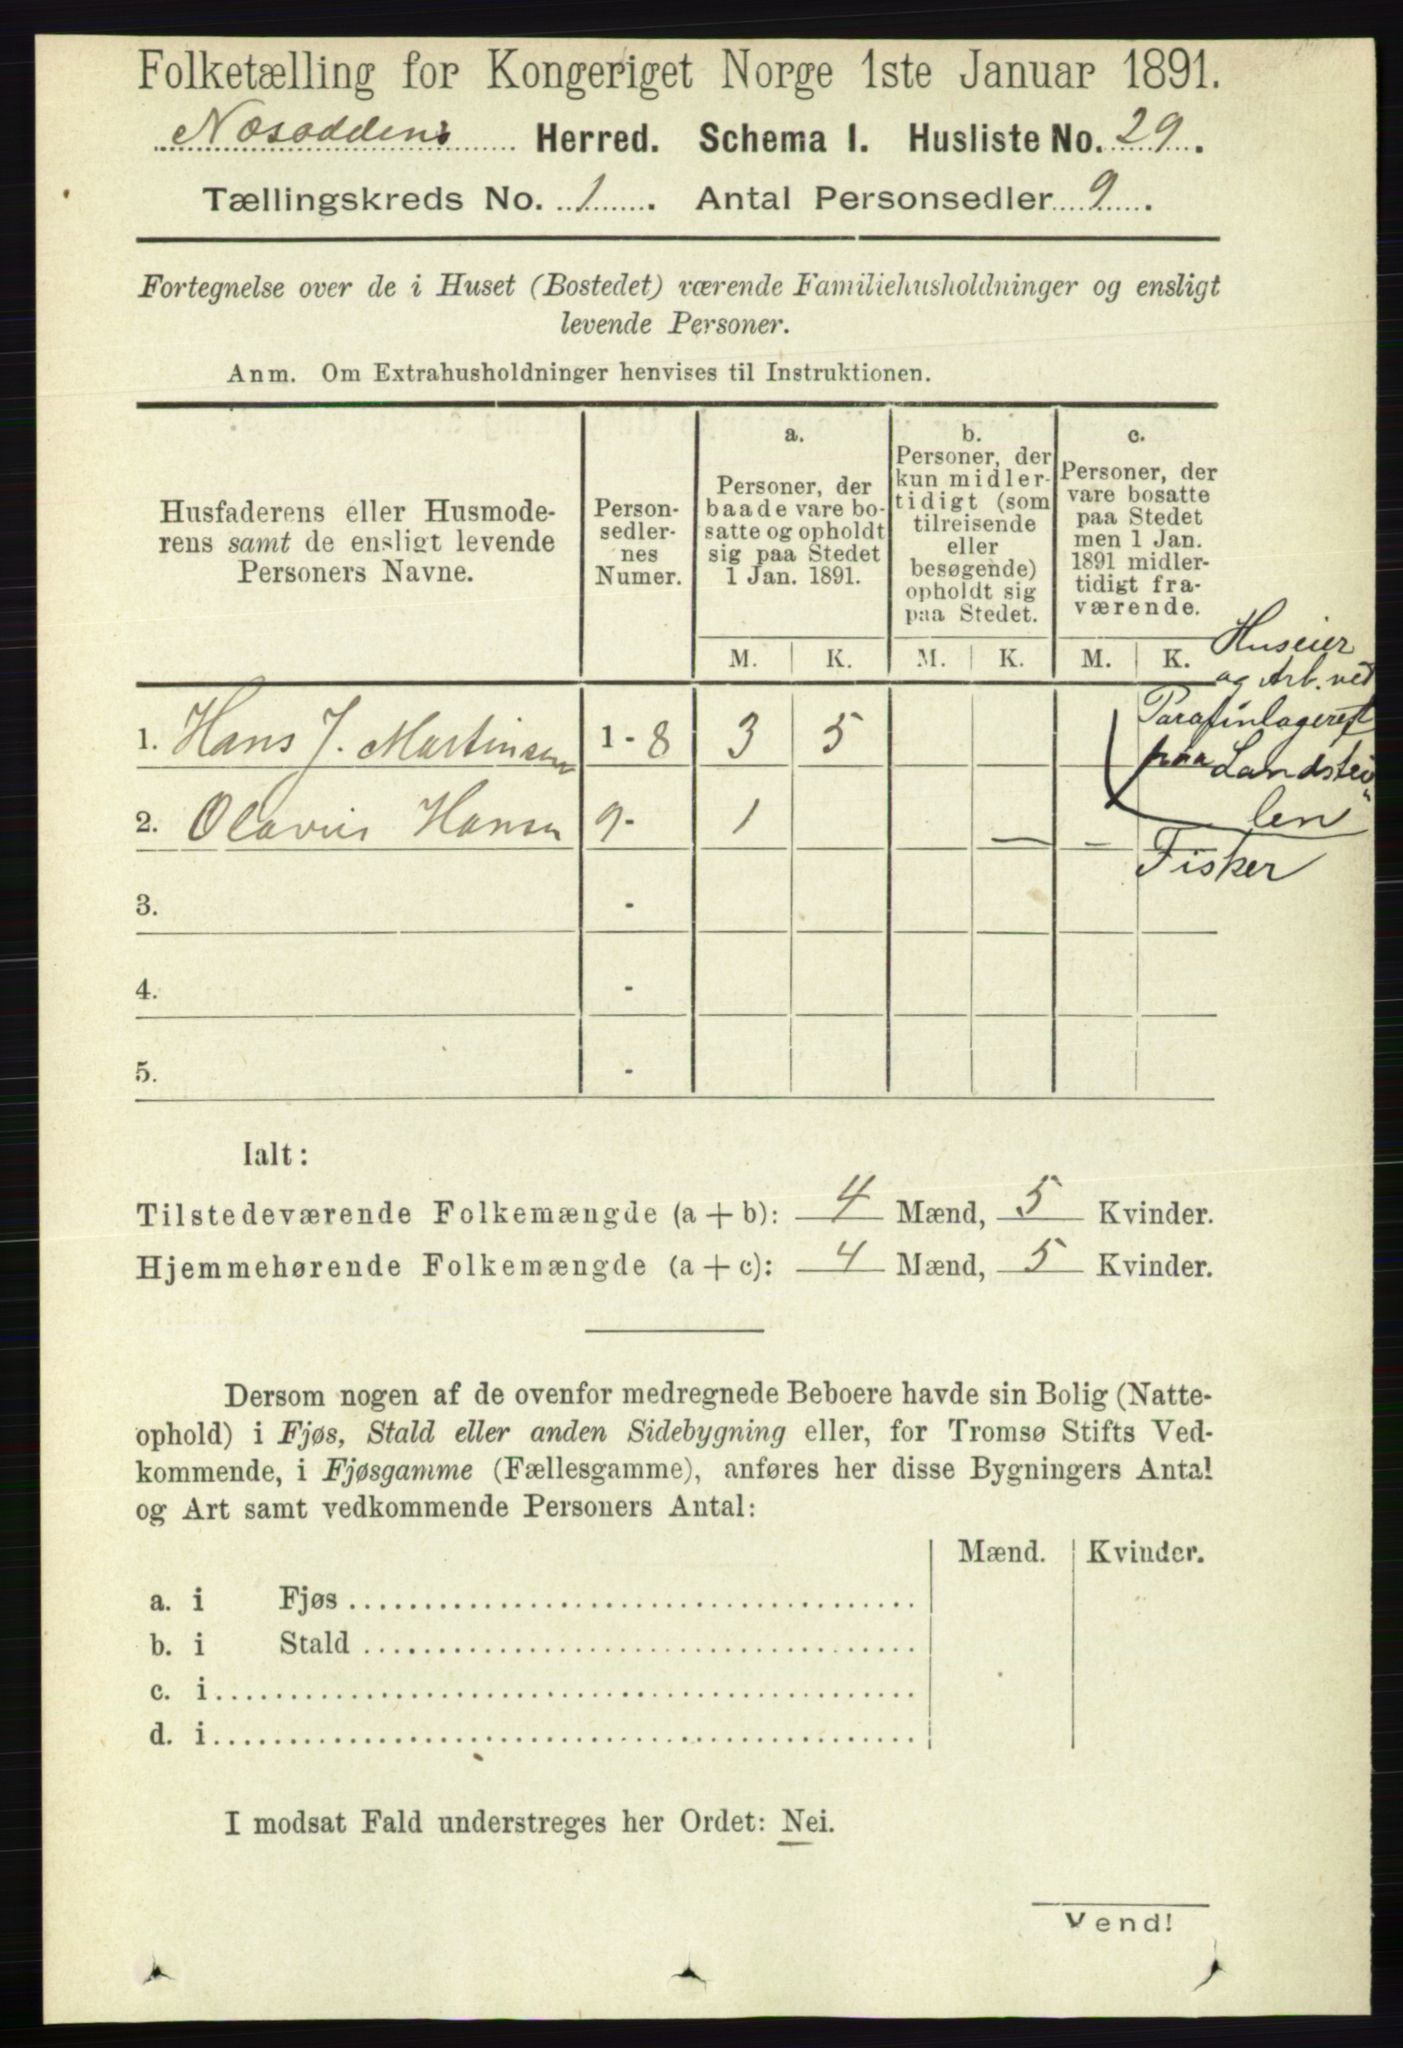 Folketælling for Kongeriget Norge 1ste Januar 1891.
Næsoddens Herred. Schema I. Husliste No. 29.
Tællingskreds No. 1. Antal Personsedler 9.
Fortegnelse over de i Huset (Bostedet) værende Familiehusholdninger og ensligt
levende Personer.
Anm. Om Extrahusholdninger henvises til Instruktionen.
Husfaderens eller Husmode-
rens samt de ensligt levende
Personers Navne.
Person-
sedler-
nes
Numer.
a.
Personer, der
baade vare bo-
satte og opholdt
sig paa Stedet
1 Jan. 1891.
b.
Personer, der
kun midler-
tidigt (som
tilreisende
eller
besøgende)
opholdt sig
paa Stedet.
c.
Personer, der
vare bosatte
paa Stedet
men 1 Jan.
1891 midler-
tidigt fra-
værende.
M. K. M. K. M. K.
Huseier
og Arb. ved
Parafinlageret
paa Landstei
len
1. Hans J. Martinsen 1 - 8 3 5
2. Olavius Hansen 9 - 1 — –
Fisker
3. -
4. -
5. -
Ialt:
Tilstedeværende Folkemængde (a + b): 4 Mænd, 5 Kvinder.
Hjemmehørende Folkemængde (a + c): 4 Mænd, 5 Kvinder.
Dersom nogen af de ovenfor medregnede Beboere havde sin Bolig (Natte-
ophold) i Fjøs, Stald eller anden Sidebygning eller, for Tromsø Stifts Ved-
kommende, i Fjøsgamme (Fællesgamme), anføres her disse Bygningers Antal
og Art samt vedkommende Personers Antal:
Mænd. Kvinder.
a. i Fjøs
b. i Stald
c. i
d. i
I modsat Fald understreges her Ordet: Nei.
Vend!